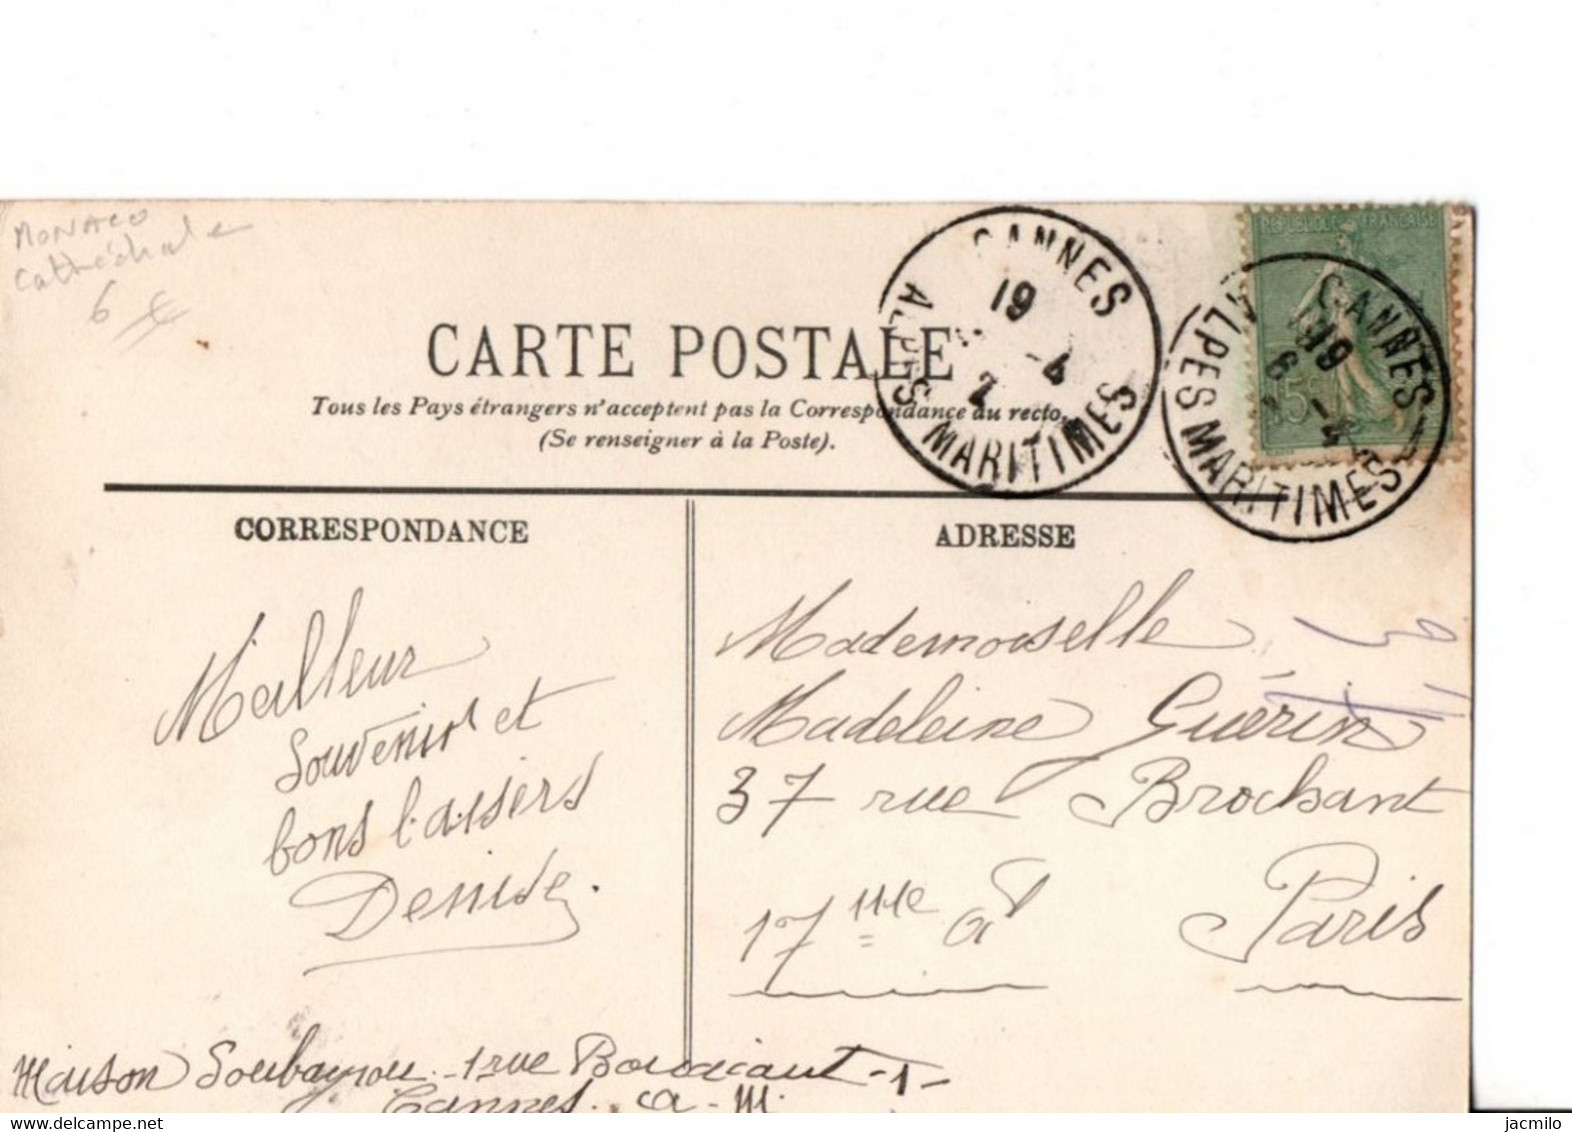 MONACO
Cathédrale
6 €
CARTE POSTALE
Tous les Pays étrangers n'acceptent pas la Correspondance au recto.
(Se renseigner à la Poste).
CANNES
19 -4
2
ALPES MARITIMES
REPUBLIQUE FRANÇAISE
15c
CANNES
19 -4
ALPES MARITIMES
CORRESPONDANCE
ADRESSE
Meilleur
Souvenir et
bons baisers
Denise.
Mademoiselle
Madeleine Guérin
37 rue Brochant
17eme Paris
Maison Soubayrou - 1 rue
Cannes. A-M.
jacmilo